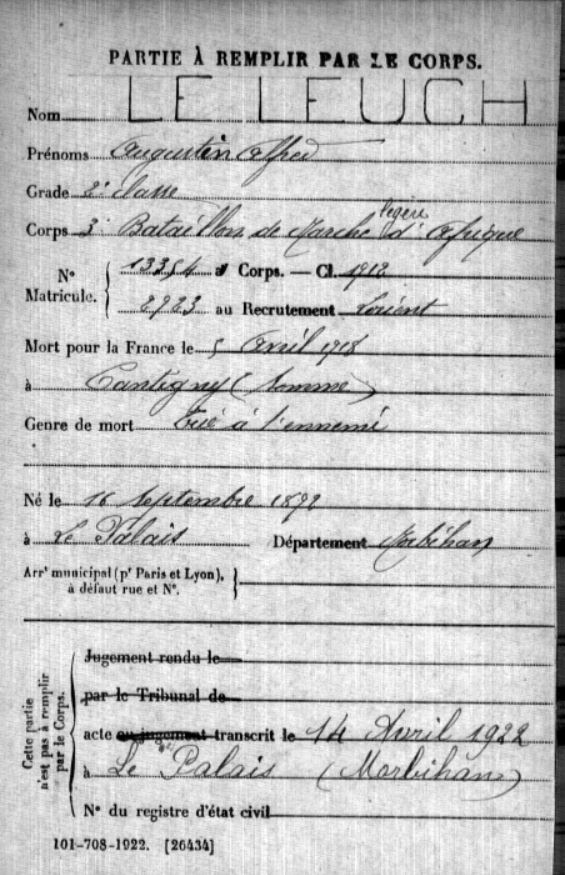 PARTIE À REMPLIR PAR LE CORPS.
Nom LE LEUCH
Prénoms Augustin Alfred
Grade 2e classe
Corps 3e Bataillon de Marche légère d'Afrique
N° Matricule. 13354 au Corps. — Cl. 1912
2923 au Recrutement Lorient
Mort pour la France le 5 Avril 1918
à Cantigny (Somme)
Genre de mort Tué à l'ennemi
Né le 16 Septembre 1892
à Le Palais Département Morbihan
Arrt municipal (pr Paris et Lyon), à défaut rue et N°.
Cette partie n'est pas à remplir par le Corps.
Jugement rendu le
par le Tribunal de
acte ou jugement transcrit le 14 Avril 1922
à Le Palais (Morbihan)
N° du registre d'état civil
101-708-1922. [26434]